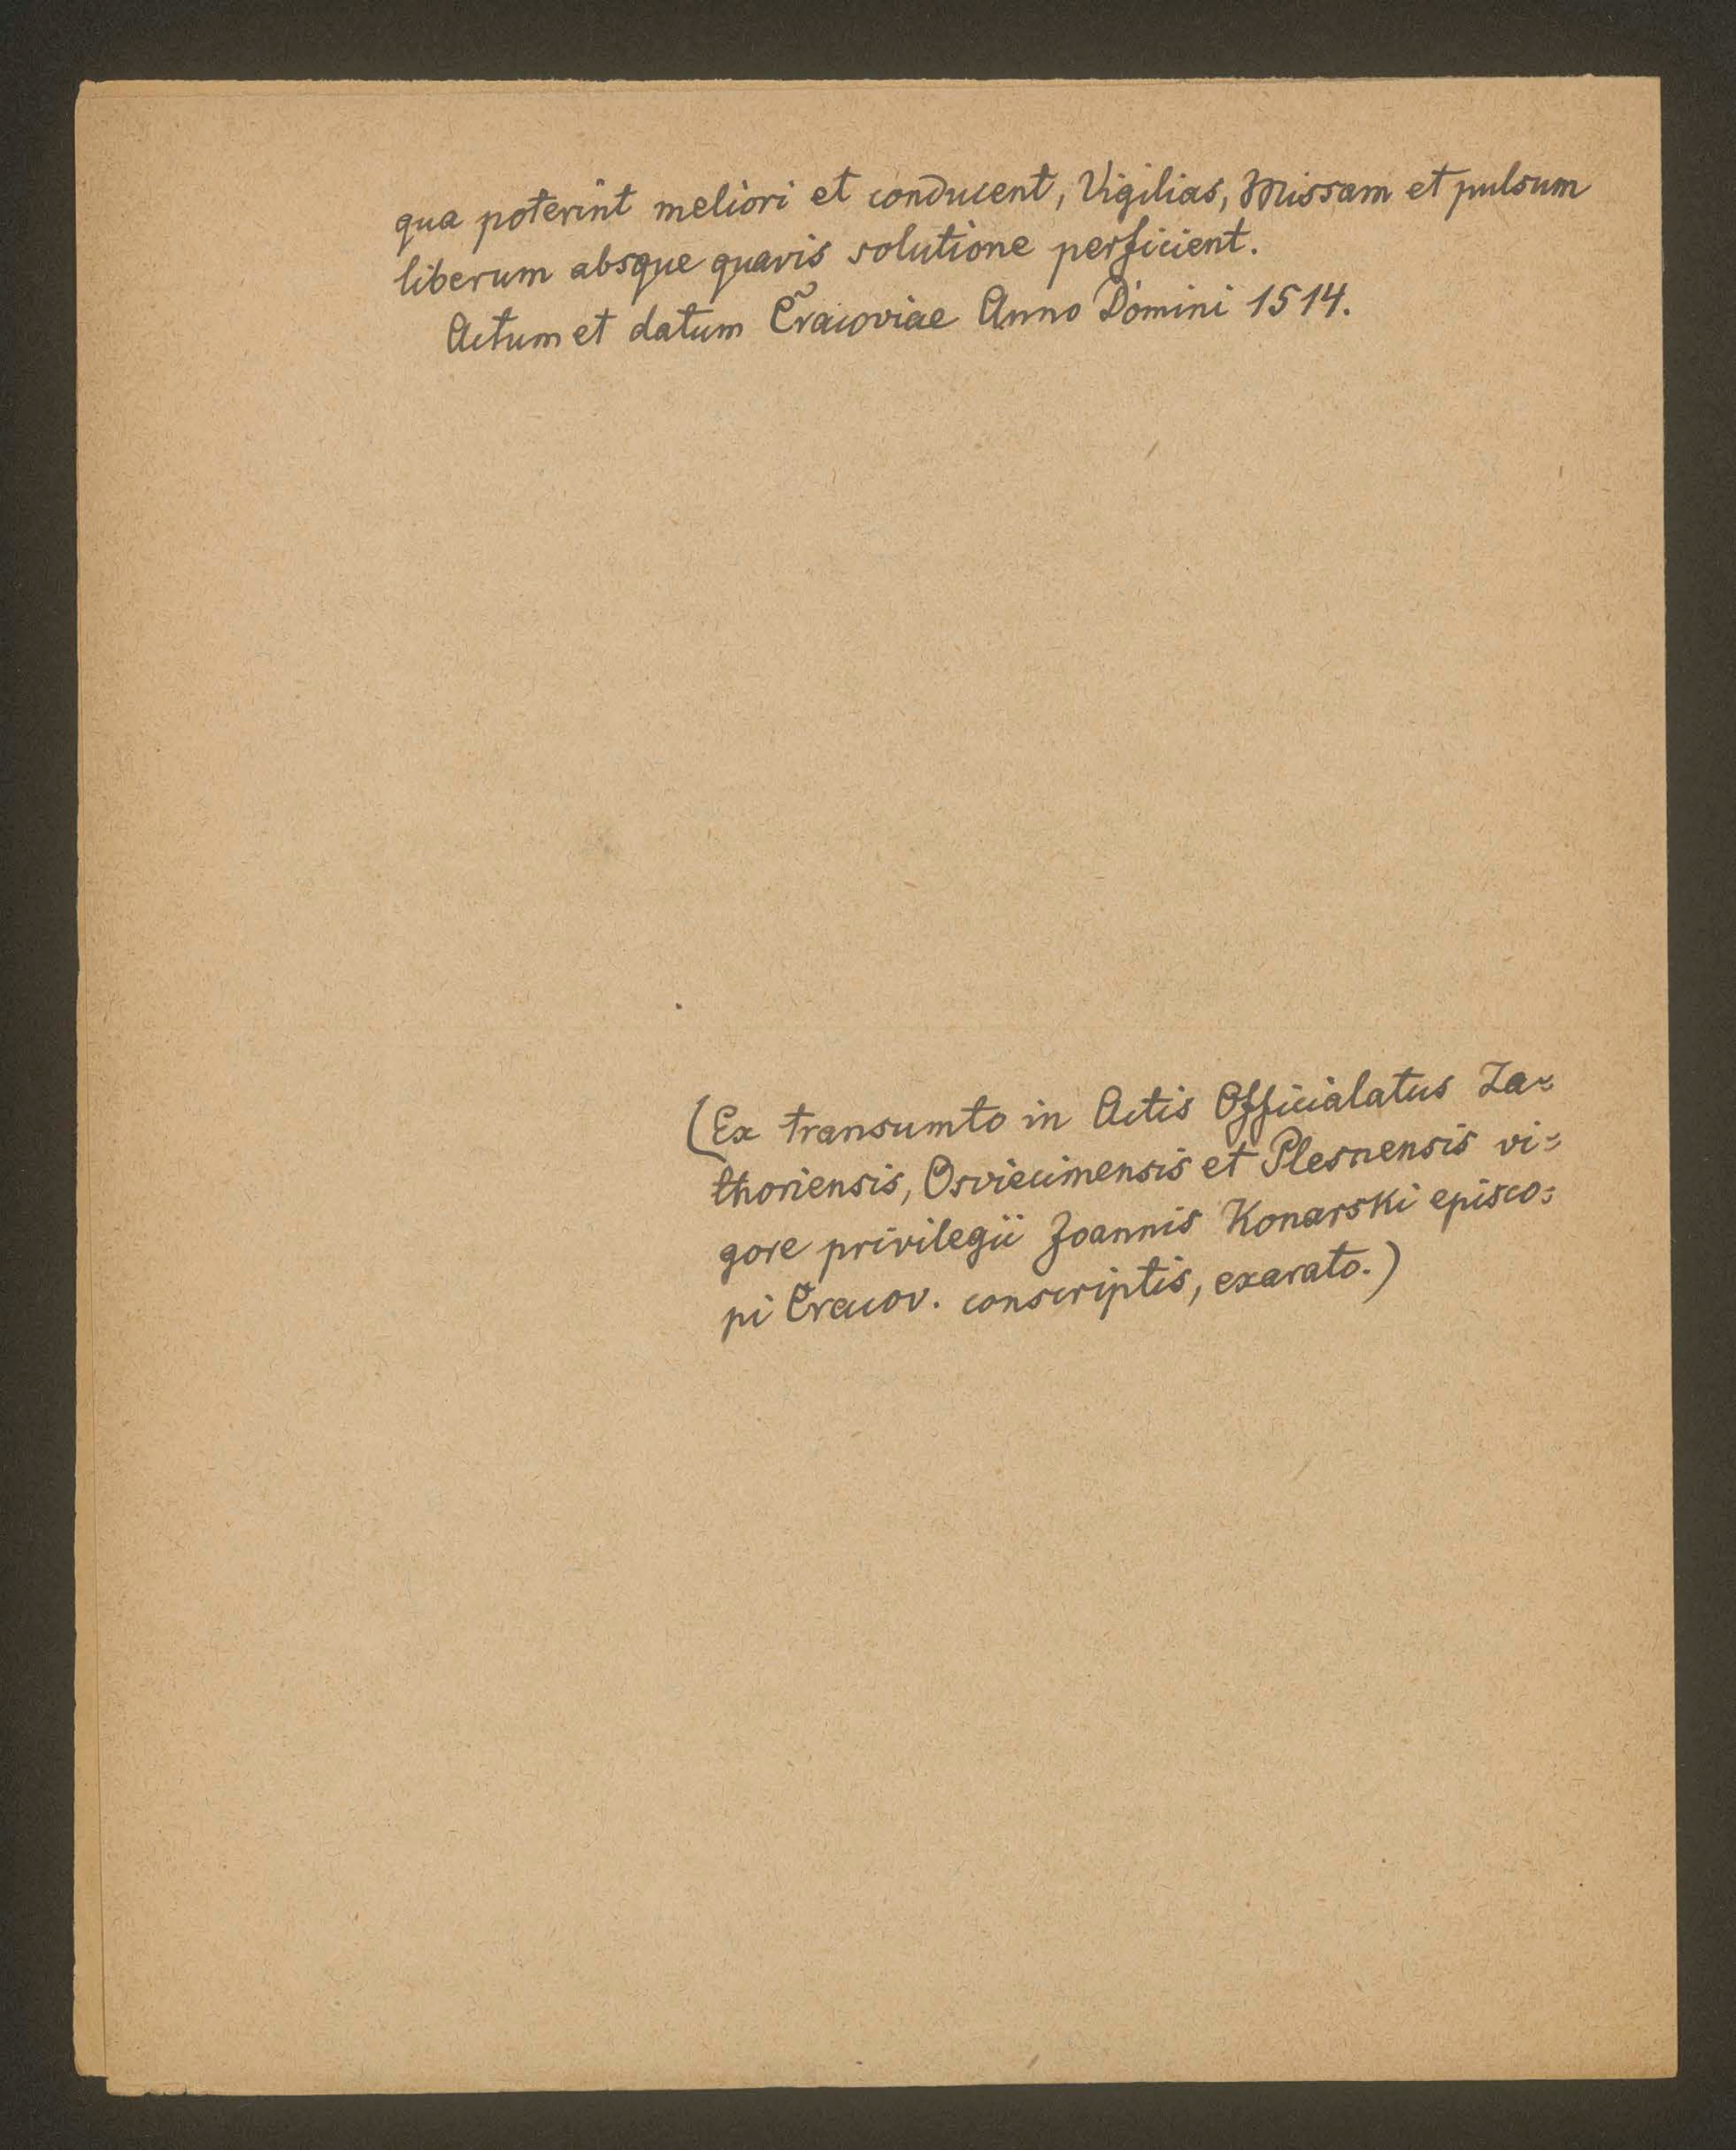 qua poterint meliori et conducent, Vigilias, Missam et pulsum
liberum absque quavis solutione perficient.
Actum et datum Cracoviae Anno Domini 1514.
(Ex transumto in Actis Officialatus Za-
thoriensis, Osviecimensis et Plesnensis vi-
gore privilegii Joannis Konarski episco-
pi Cracov. conscriptis, exarato.)